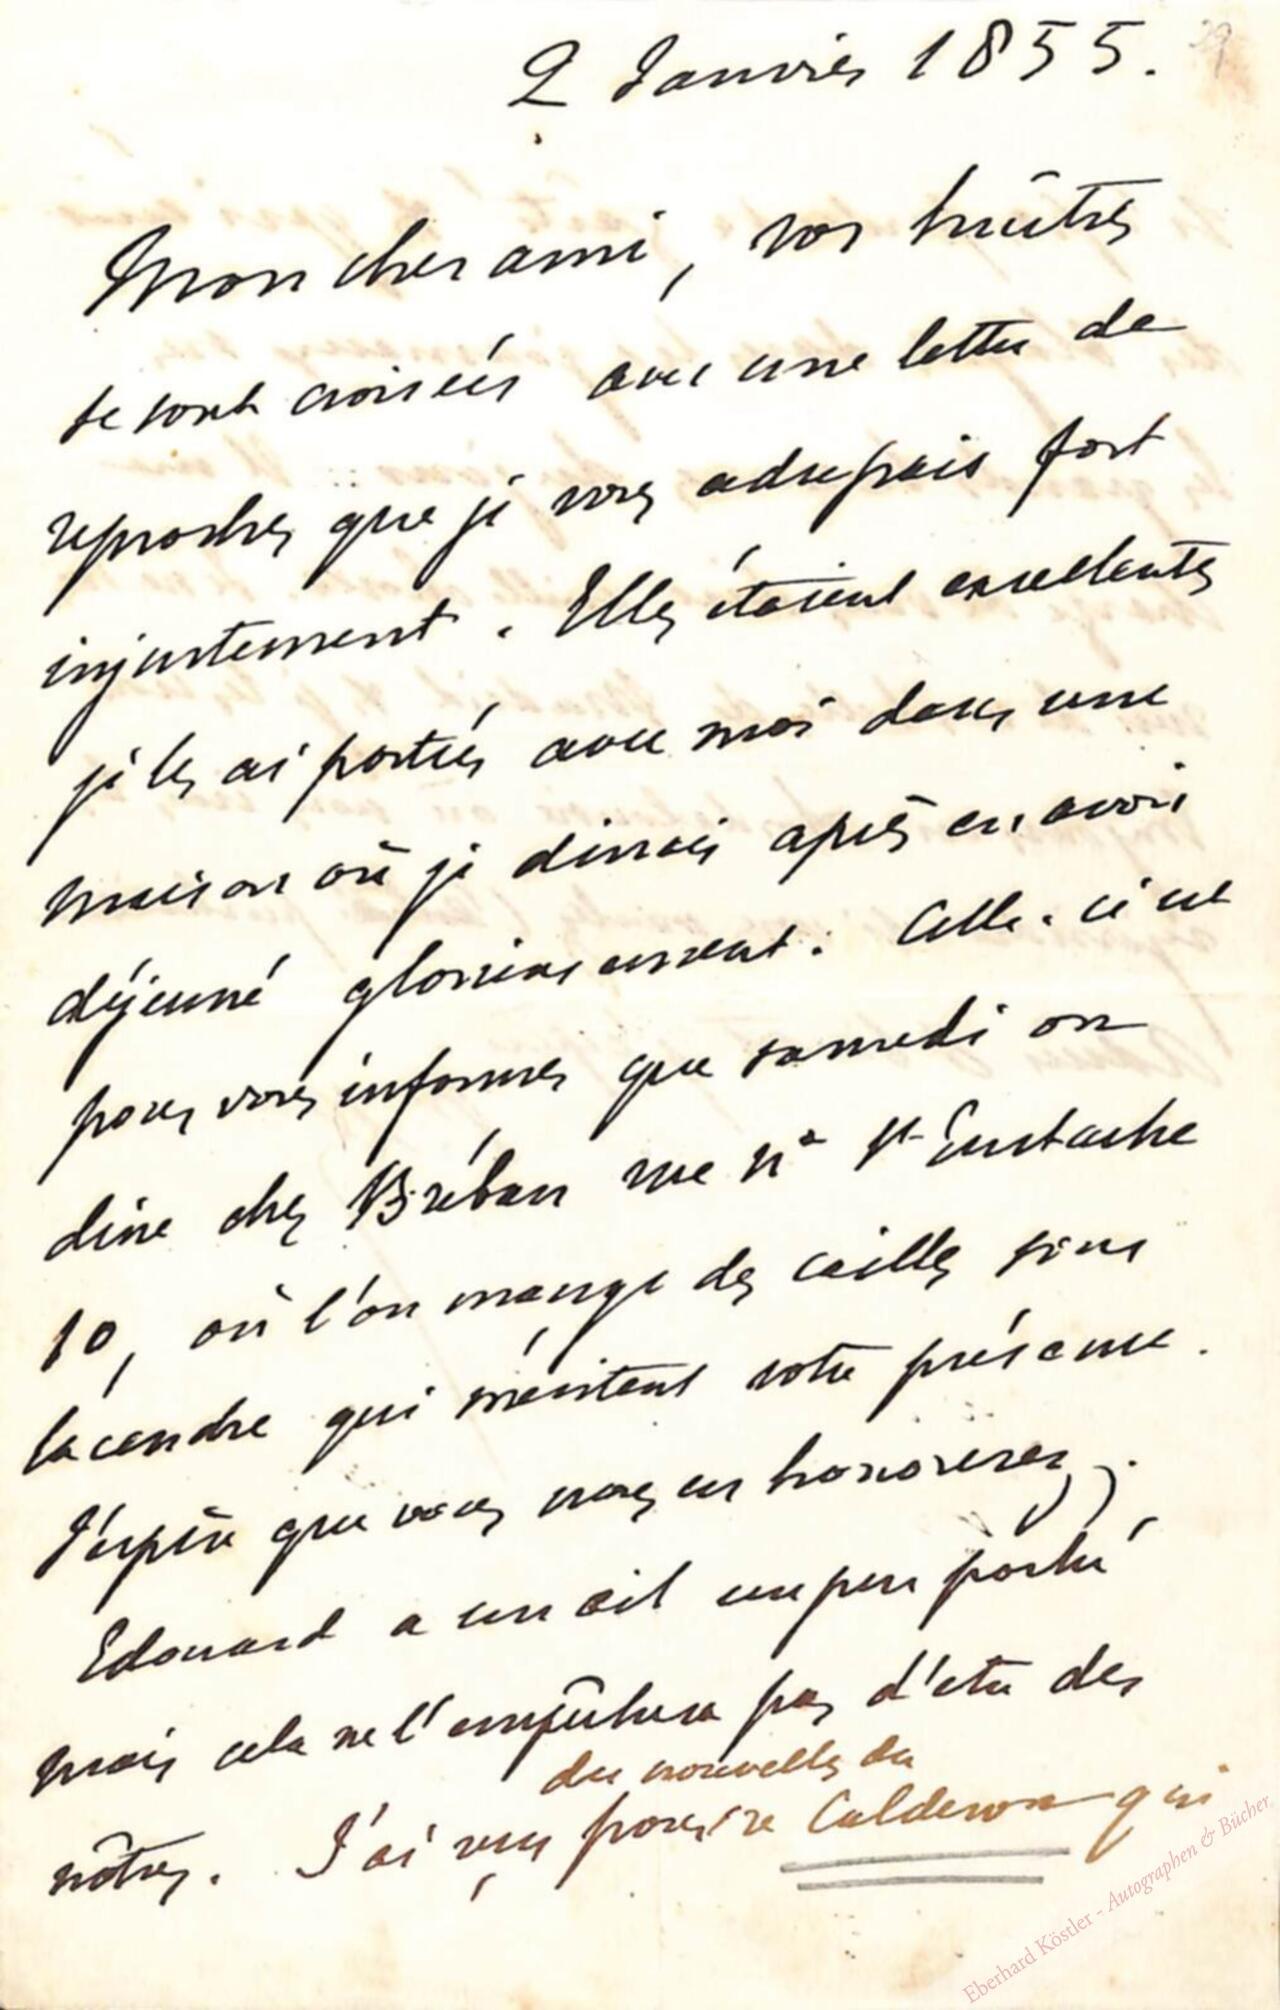 2 Janvier 1855.
Mon cher ami, vos huîtres
se sont croisées avec une lettre de
reproches que je vous adressais fort
injustement. Elles étaient excellentes
je les ai portées avec moi dans une
maison où je dinais après en avoir
déjeuné glorieusement. Celle-ci est
pour vous informer que samedi on
dine chez Bréban rue Nve St Eustache
10, où l'on mange des cailles sous
la cendre qui méritent votre présence.
J'espère que vous nous en honorerez.
Edouard a un œil un peu poché
mais cela ne l'empêchera pas d'etre des
des nouvelles du
nôtres. J'ai reçu Calderon qui
Eberhard Köstler - Autographen & Bücher